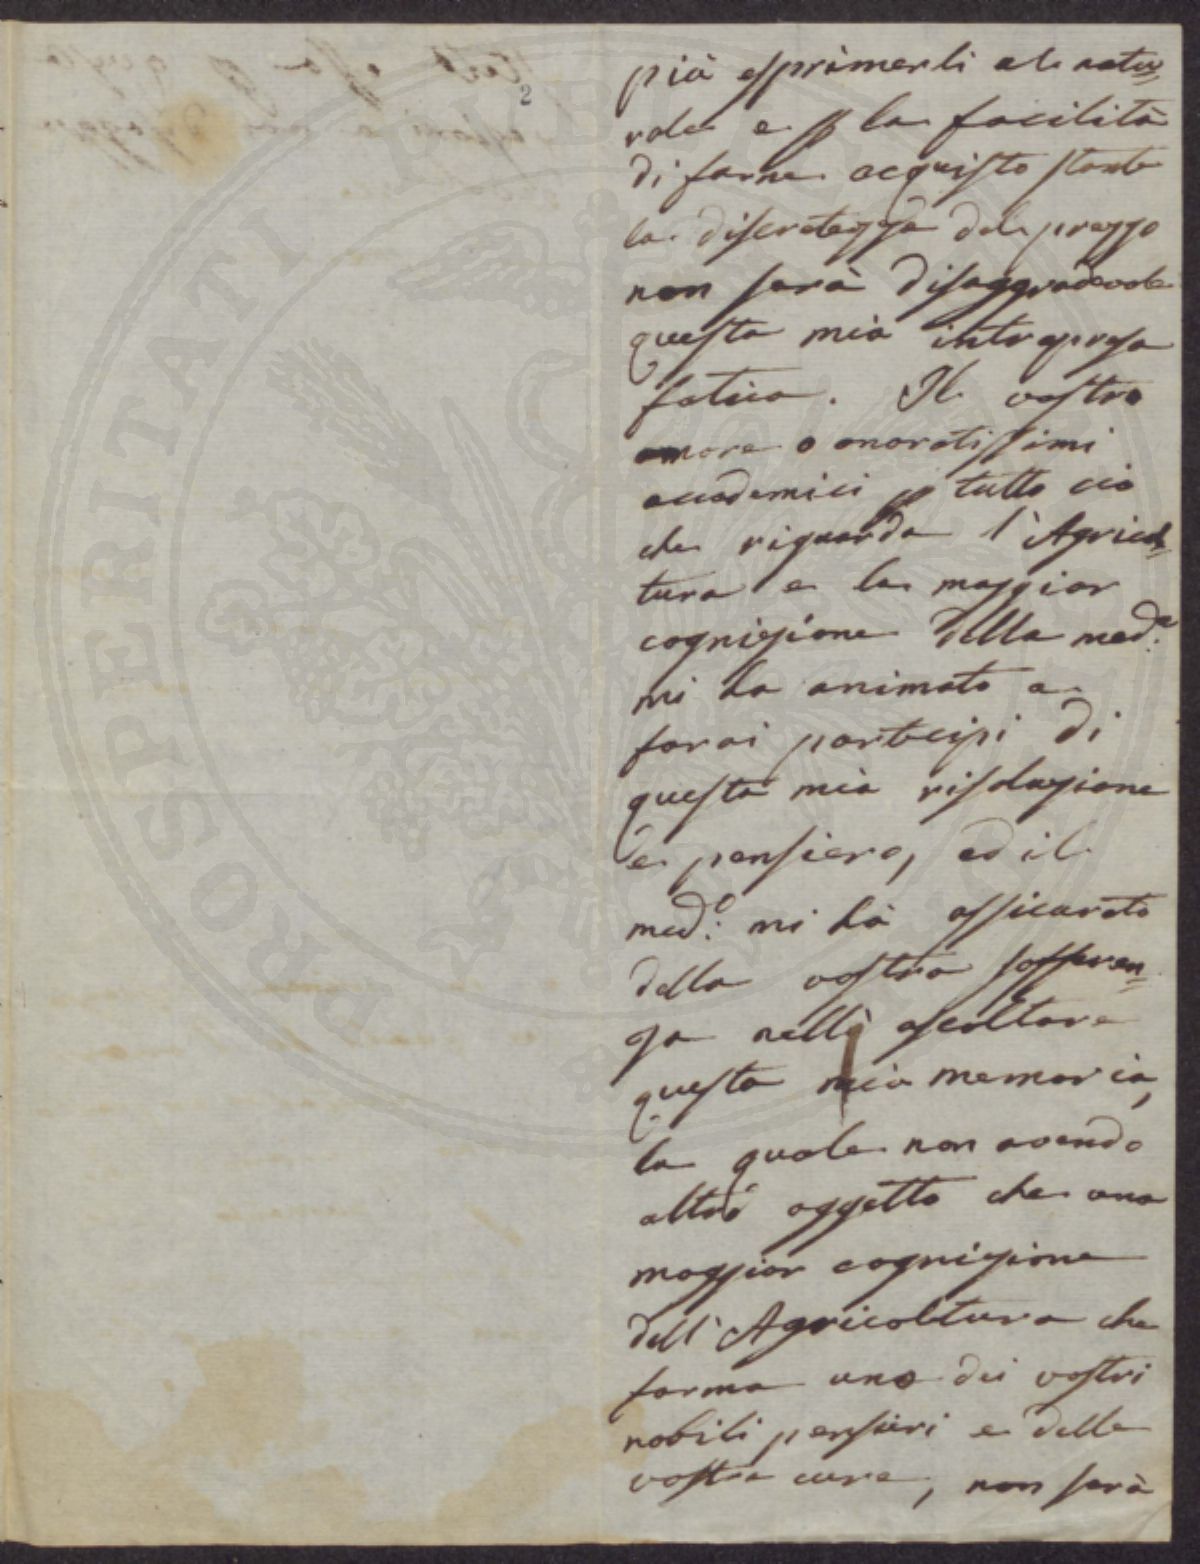 2
più esprimerli al natu=
rale e p la facilità
di farne acquisto stante
la discretezza del prezzo
non sarà disaggradevole
questa mia intrapresa
fatica. Il vostro
amore o onoratissimi
accademici p tutto ciò
che riguarda l'Agricol=
tura e la maggior
cognizione della med.a
mi ha animato a
farvi partecipi di
questa mia risoluzione
e pensiero, ed il
med.o mi hà assicurato
della vostra sofferen=
za nell' ascoltare
questa mia memoria,
la quale non avendo
altro oggetto che una
maggior cognizione
dell'Agricoltura che
forma uno dei vostri
nobili pensieri e delle
vostre cure, non sarà
PROSPERITATI PUBLICAE